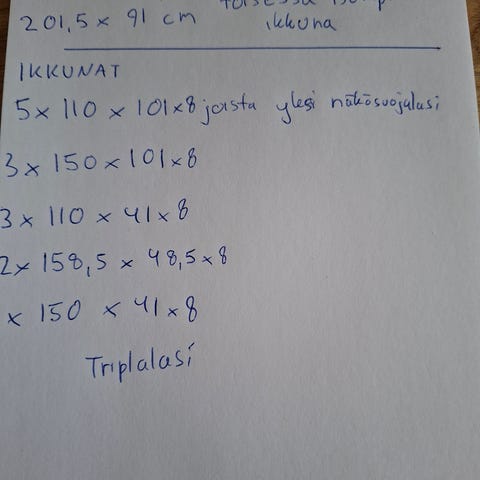 toisessa
201,5 x 91 cm ikkuna
IKKUNAT
5x 110 x 101x8 joista yksi näkösuojalasi
3x 150 x 101x8
3x 110 x 41x8
2x 158,5 x 48,5x8
x 150 x 41x8
Triplalasi